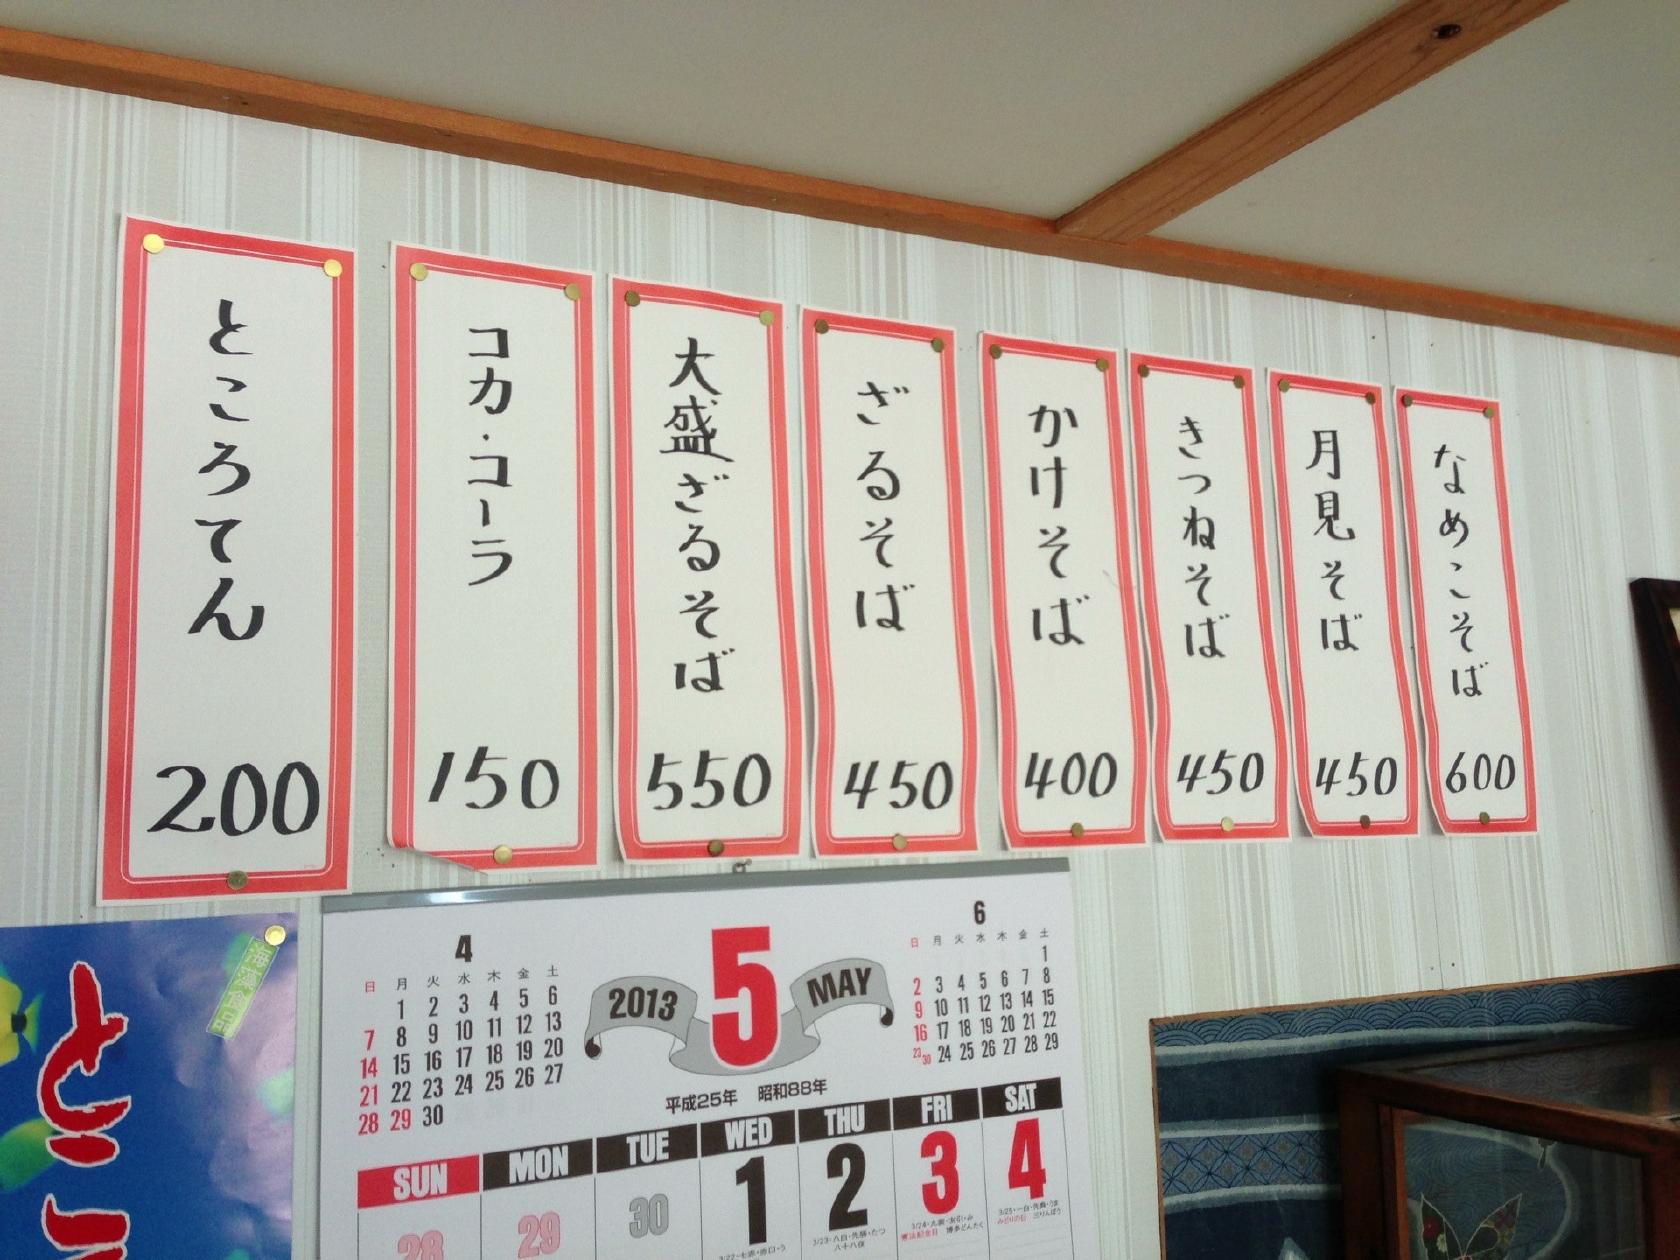 ところてん
200
コカ・コーラ
150
大盛ざるそば
550
ざるそば
450
かけそば
400
きつねそば
450
月見そば
450
なめこそば
600
海藻食品
ところ
4
日 月 火 水 木 金 土
1 2 3 4 5 6
7 8 9 10 11 12 13
14 15 16 17 18 19 20
21 22 23 24 25 26 27
28 29 30
2013 5 MAY
平成25年 昭和88年
6
日 月 火 水 木 金 土
1
2 3 4 5 6 7 8
9 10 11 12 13 14 15
16 17 18 19 20 21 22
23/30 24 25 26 27 28 29
SUN MON TUE WED THU FRI SAT
28 29 30 1 2 3 4
3/23・八白・先勝・たつ
八十八夜
3/24・九紫・友引・み
憲法記念日 博多どんたく
3/25・一白・先負・うま
みどりの日 三りんぼう